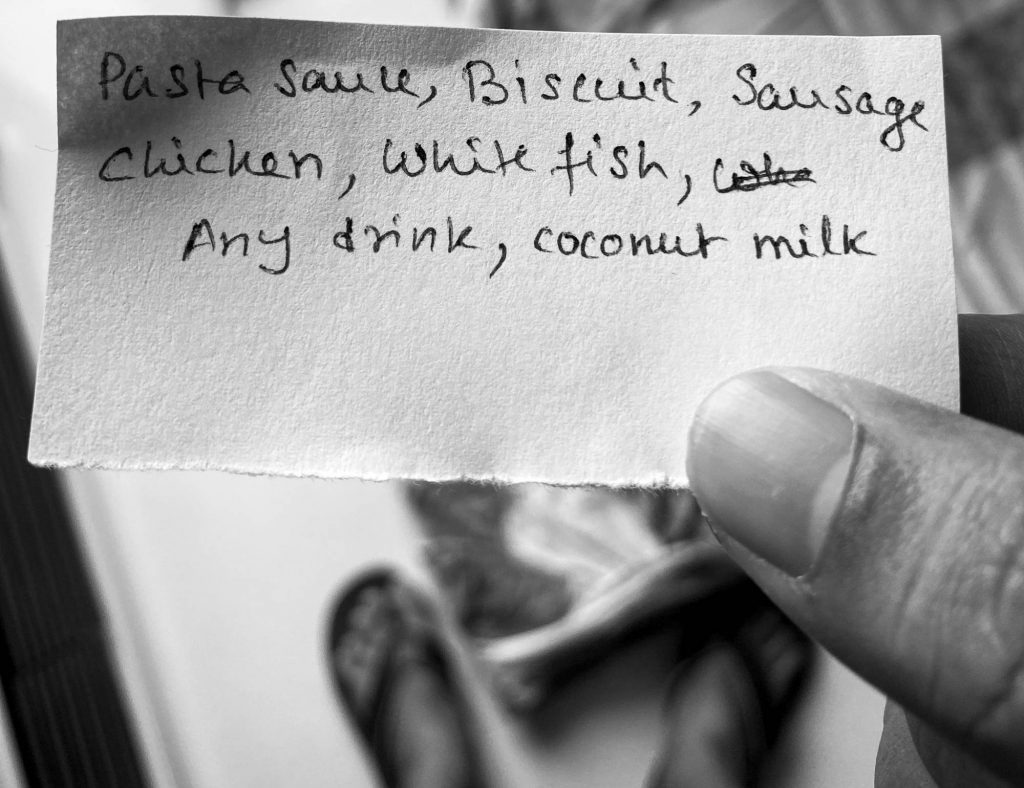 Pasta Sauce, Biscuit, Sausage
Chicken, White fish,
Any drink, coconut milk